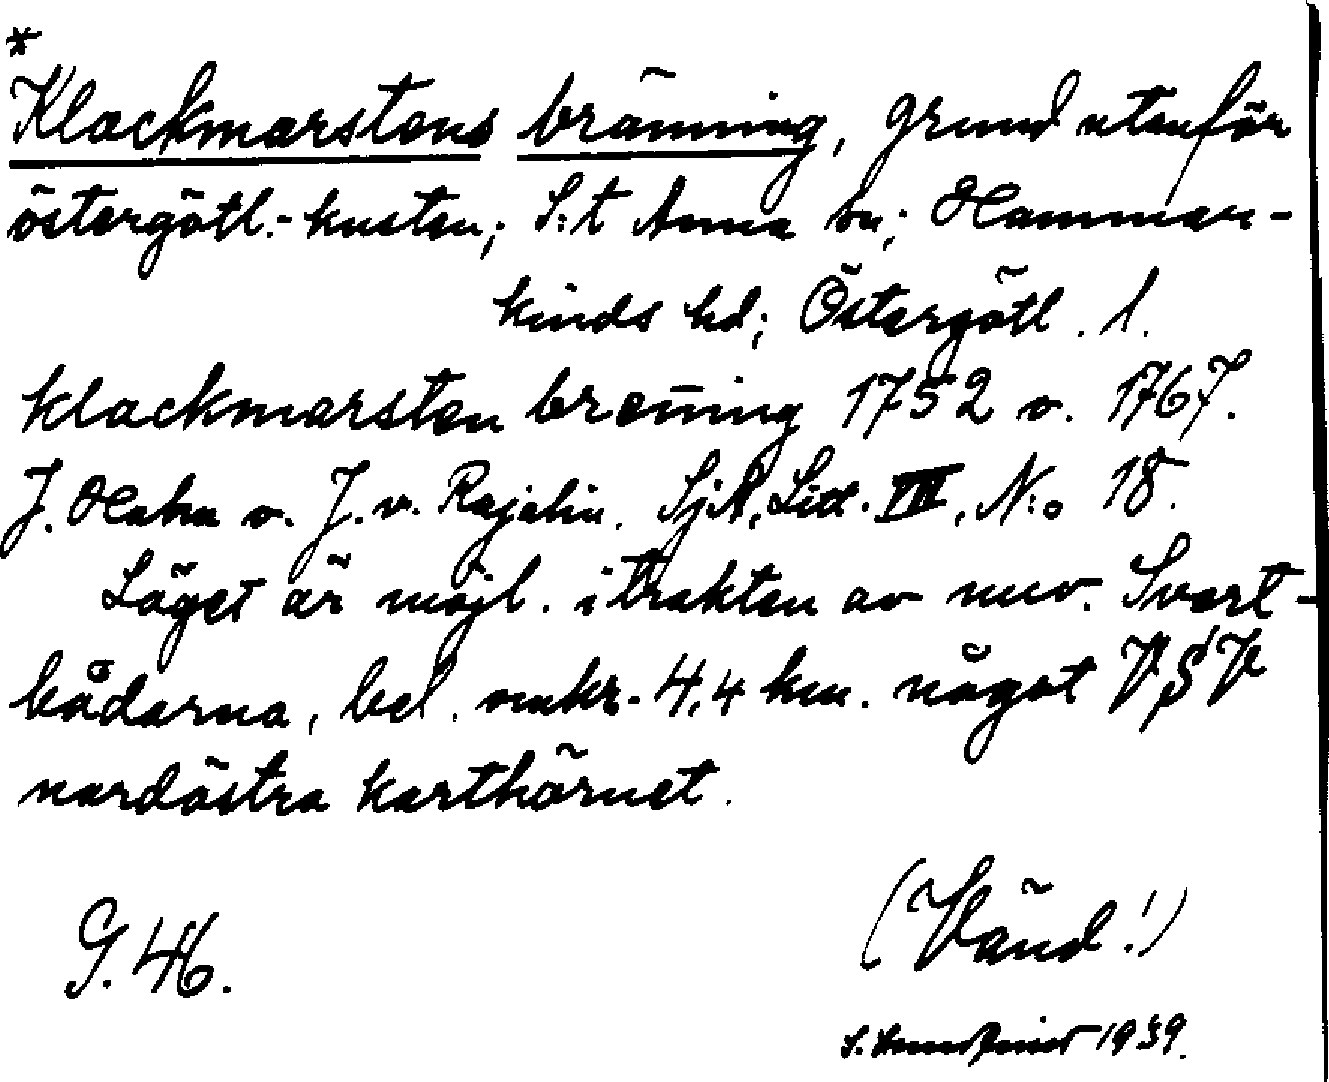 *
Klackmarstens bränning, grund utanför
östergötl.-kusten; S:t Anna sn; Hammar-
kinds hd; Östergötl. l.
klackmarsten breñing 1752 o. 1767.
J. Hahn o. J. v. Rajalin. SjA, Lid. VII, N:o 18.
Läget är möjl. i trakten av nuv. Svart-
bådarna, bel. omkr. 4,4 km. något VSV
nordöstra karthörnet.
(Vänd!)
G. 46.
1939.